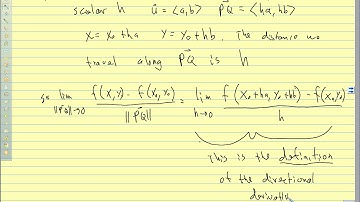 scalar h   û = <a,b>   PQ = <ha, hb>
x = x₀ + ha   y = y₀ + hb. The distance we
travel along PQ is h
so lim ||PQ||→0 f(x,y) - f(x₀,y₀) / ||PQ|| = lim h→0 f(x₀+ha, y₀+hb) - f(x₀,y₀) / h
This is the definition
of the directional
derivative